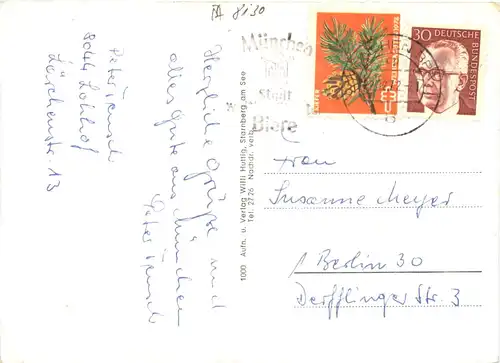 8130
Herzliche Grüße und
alles Gute aus München
Peter
8044 Lohhof
Lärchenstr. 13
1000 Aufn. u. Verlag Willi Huttig, Starnberg am See
Tel. 2726 Nachdr. verb.
München
Stadt
Biere
30 DEUTSCHE
BUNDESPOST
Frau
Susanne Meyer
1 Berlin 30
Derfflinger Str. 3